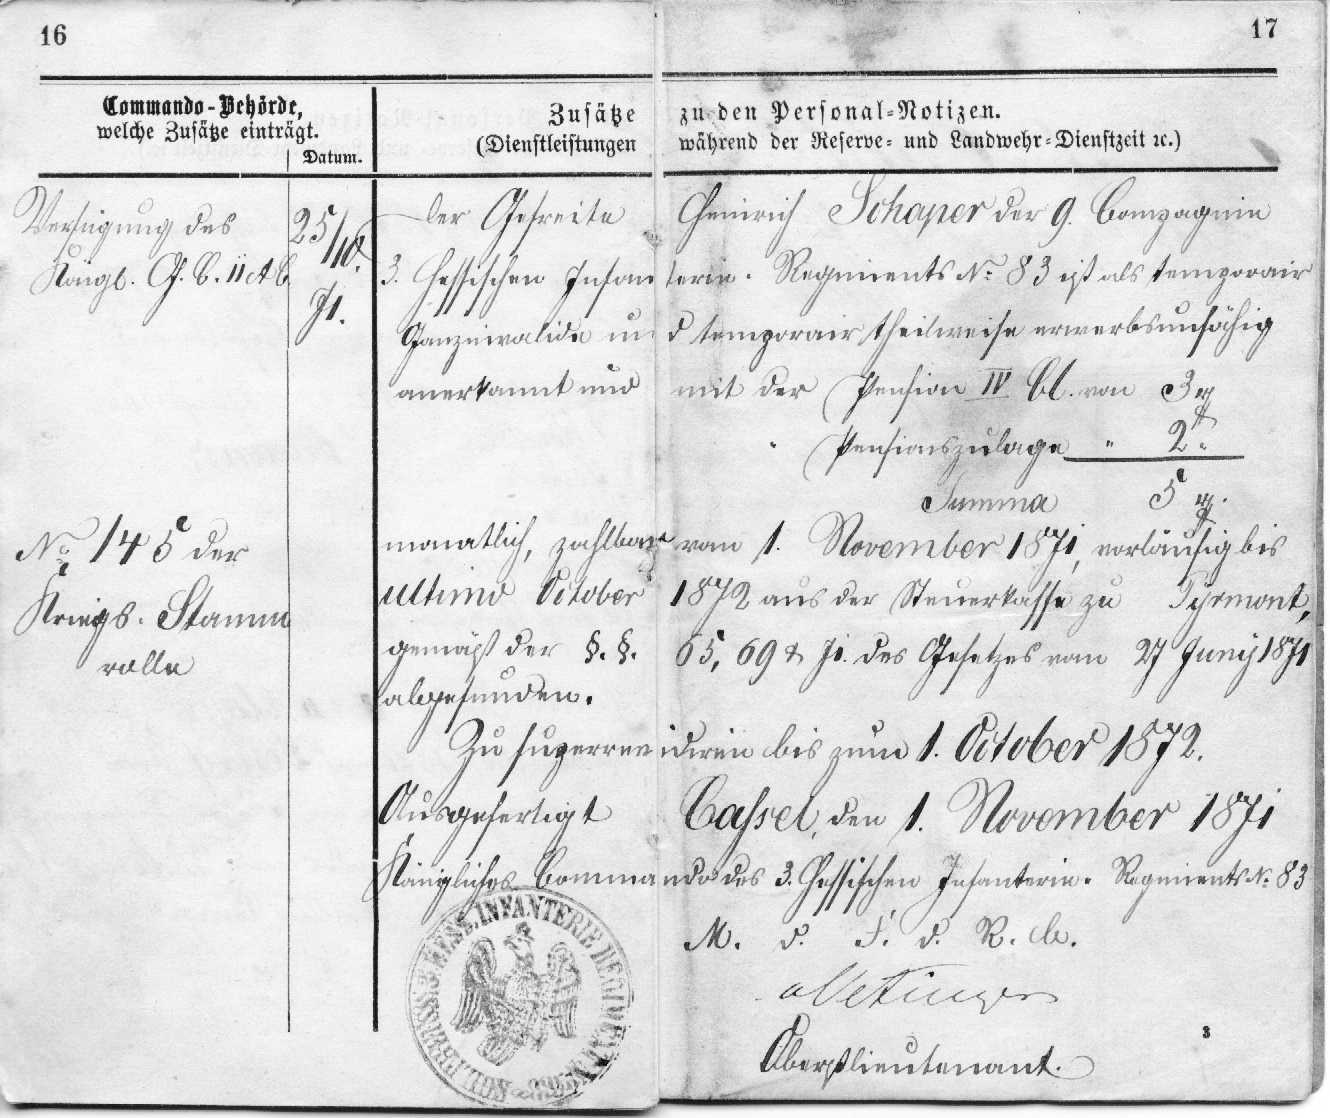 16
17
Commando-Behörde,
welche Zusätze einträgt.
Datum.
Zusätze zu den Personal-Notizen.
(Dienstleistungen während der Reserve- und Landwehr-Dienstzeit ꝛc.)
Verfügung des
Königl. G. C. 11 A C.
25/10.
71.
der Gefreite Heinrich Schaper der 9. Compagnie
3. Hessischen Infanterie-Regiments No. 83 ist als temporair
Ganzinvalide und temporair theilweise erwerbsunfähig
anerkannt und mit der Pension IV Cl. von 3
" Pensionszulage " 2 "
Summa 5
No. 145 der
Kriegs-Stamm
rolle
monatlich, zahlbar vom 1. November 1871, vorläufig bis
ultimo October 1872 aus der Steuerkasse zu Pyrmont,
gemäß der §. §. 65, 69 & 71. des Gesetzes vom 27 Junÿ 1871
abgefunden.
Zu superrevidiren bis zum 1. October 1872.
Ausgefertigt Cassel, den 1. November 1871
Königliches Commando des 3. Hessischen Infanterie-Regiments No. 83
M. d. F. d. R. b.
Oberstlieutenant.
3. HESS. INFANTERIE REGIMENT No. 83
3